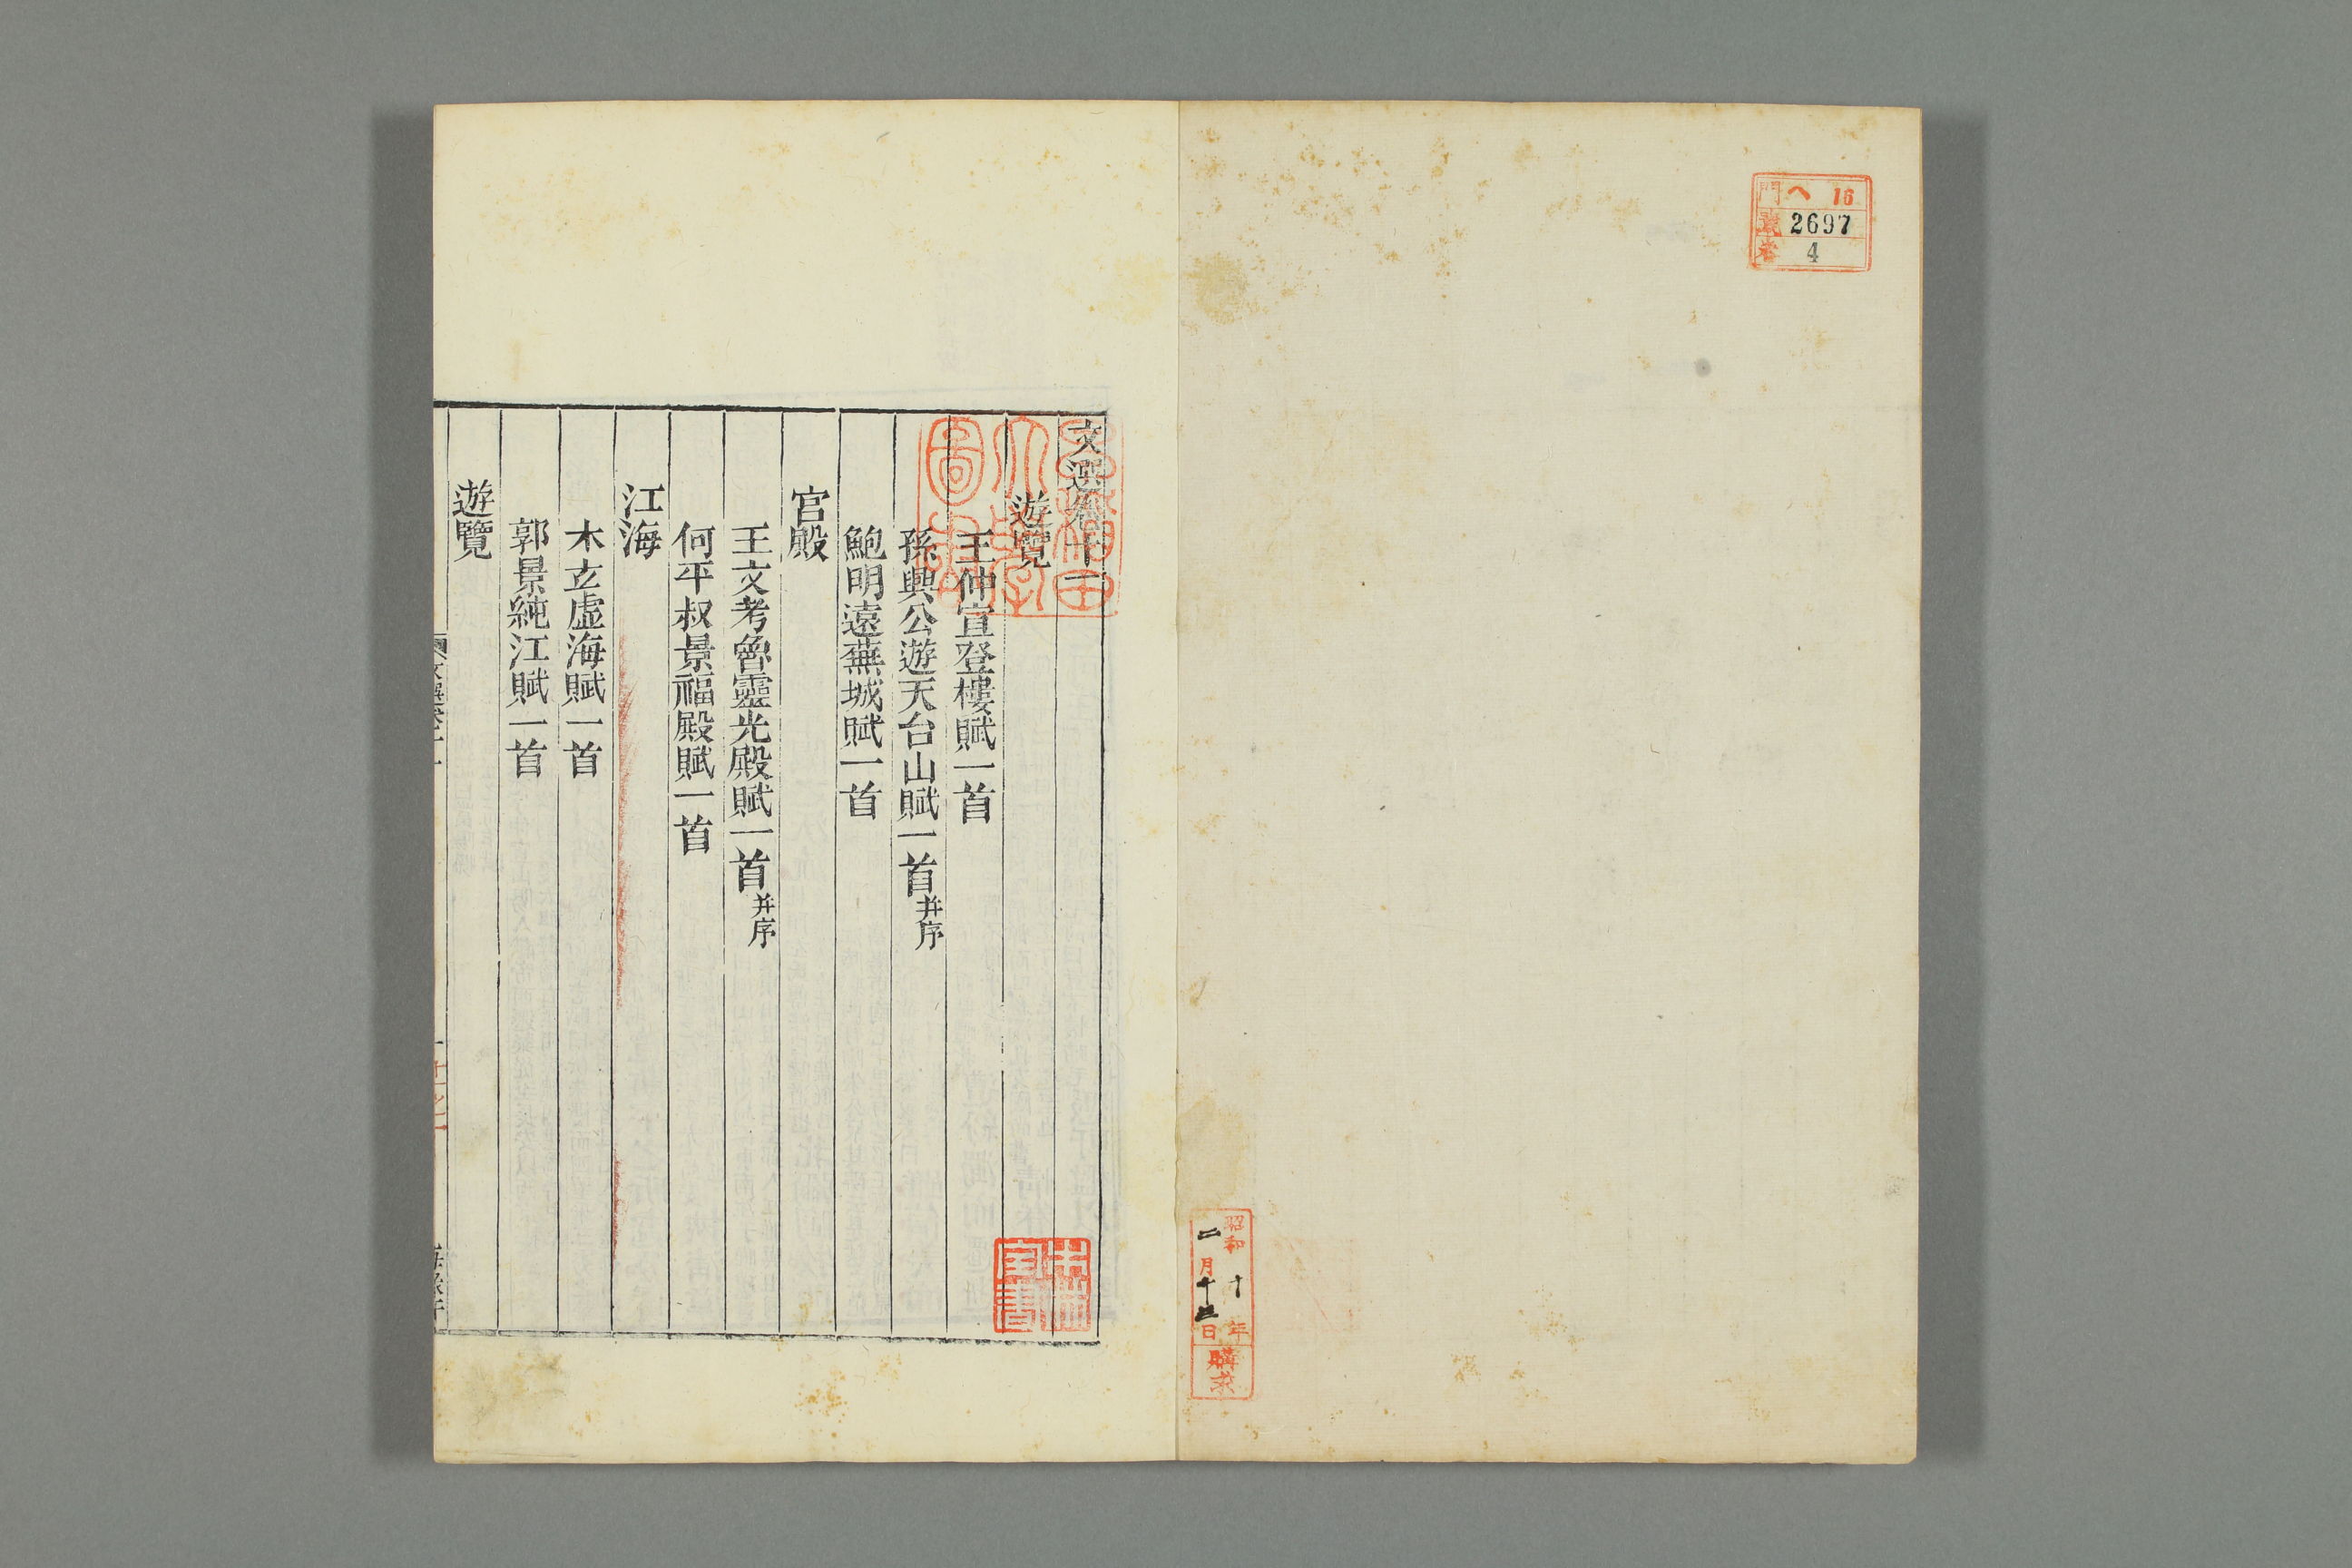 門 ヘ 16
號 2697
卷 4
昭和十年
二月十五日
購求
早稲田
大學
圖書
文選卷十一
遊覽
王仲宣登樓賦一首
孫興公遊天台山賦一首并序
鮑明遠蕪城賦一首
宮殿
王文考魯靈光殿賦一首并序
何平叔景福殿賦一首
江海
木玄虛海賦一首
郭景純江賦一首
遊覽